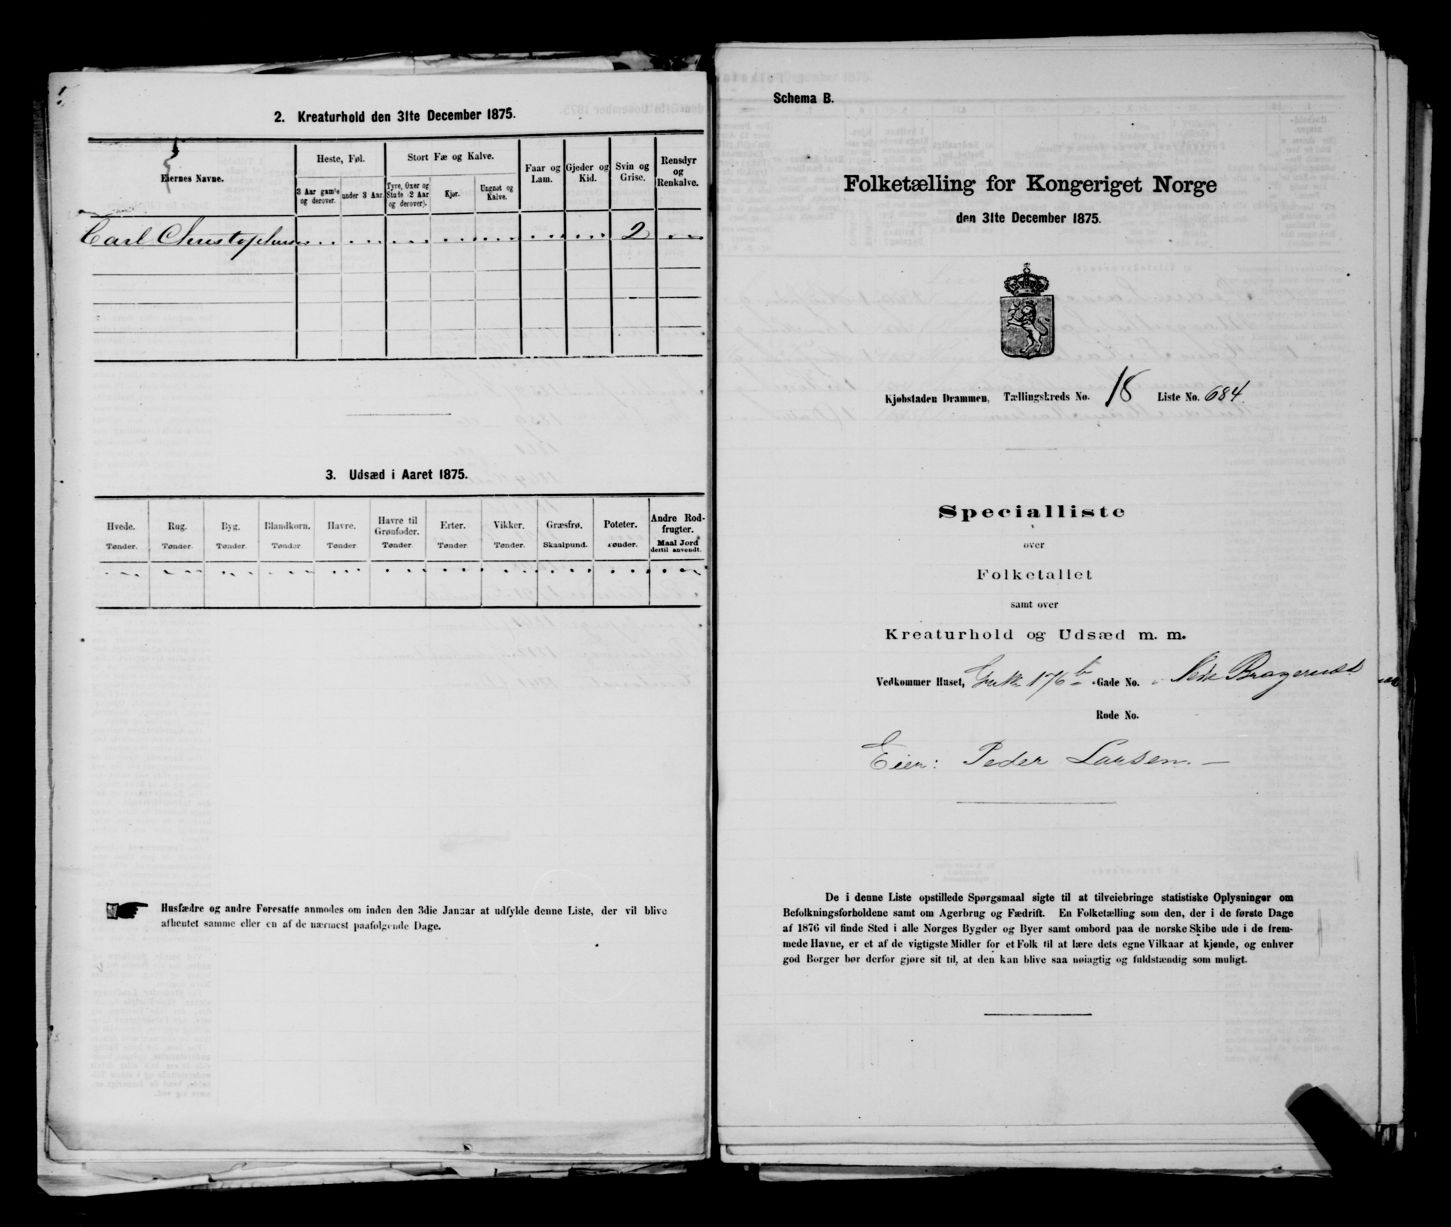 2. Kreaturhold den 31te December 1875.
Eiernes Navne.
Heste, Føl.
Stort Fæ og Kalve.
Faar og Lam.
Gjeder og Kid.
Svin og Grise.
Rensdyr og Renkalve.
3 Aar gamle og derover.
under 3 Aar.
Tyre, Oxer og Stude (2 Aar og derover).
Kjør.
Ungnøt og Kalve.
Carl Christophersen 2
3. Udsæd i Aaret 1875.
Hvede. Rug. Byg. Blandkorn. Havre. Havre til Grønfoder. Erter. Vikker. Græsfrø. Poteter. Andre Rodfrugter.
Tønder. Tønder. Tønder. Tønder. Tønder. Tønder. Tønder. Tønder. Skaalpund. Tønder. Maal Jord dertil anvendt.
Husfædre og andre Foresatte anmodes om inden den 3die Januar at udfylde denne Liste, der vil blive
afhentet samme eller en af de nærmest paafølgende Dage.
Schema B.
Folketælling for Kongeriget Norge
den 31te December 1875.
Kjøbstaden Drammen, Tællingskreds No. 18 Liste No. 684.
Specialliste
over
Folketallet
samt over
Kreaturhold og Udsæd m. m.
Vedkommer Huset, 176 b Gade No. Nedre Bragernæs
Rode No.
Eier: Peder Larsen.
De i denne Liste opstillede Spørgsmaal sigte til at tilveiebringe statistiske Oplysninger om
Befolkningsforholdene samt om Agerbrug og Fædrift. En Folketælling som den, der i de første Dage
af 1876 vil finde Sted i alle Norges Bygder og Byer samt ombord paa de norske Skibe ude i de frem-
mede Havne, er et af de vigtigste Midler for et Folk til at lære dets egne Vilkaar at kjende, og enhver
god Borger bør derfor gjøre sit til, at den kan blive saa nøiagtig og fuldstændig som muligt.